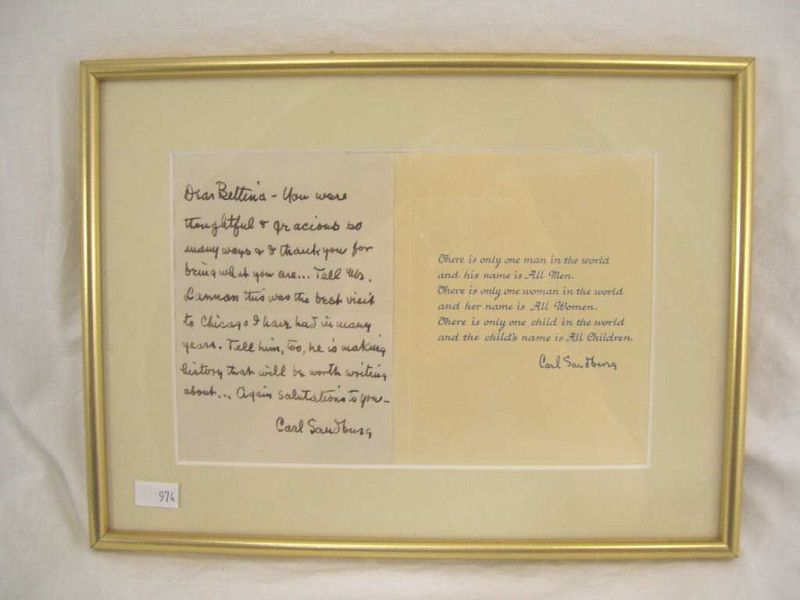 Dear Bettina – You were
thoughtful & gracious so
many ways & I thank you for
being what you are... Tell Mr.
Lannan this was the best visit
to Chicago I have had in many
years. Tell him, too, he is making
history that will be worth writing
about... Again salutations to you –
Carl Sandburg
There is only one man in the world
and his name is All Men.
There is only one woman in the world
and her name is All Women.
There is only one child in the world
and the child's name is All Children.
Carl Sandburg
974